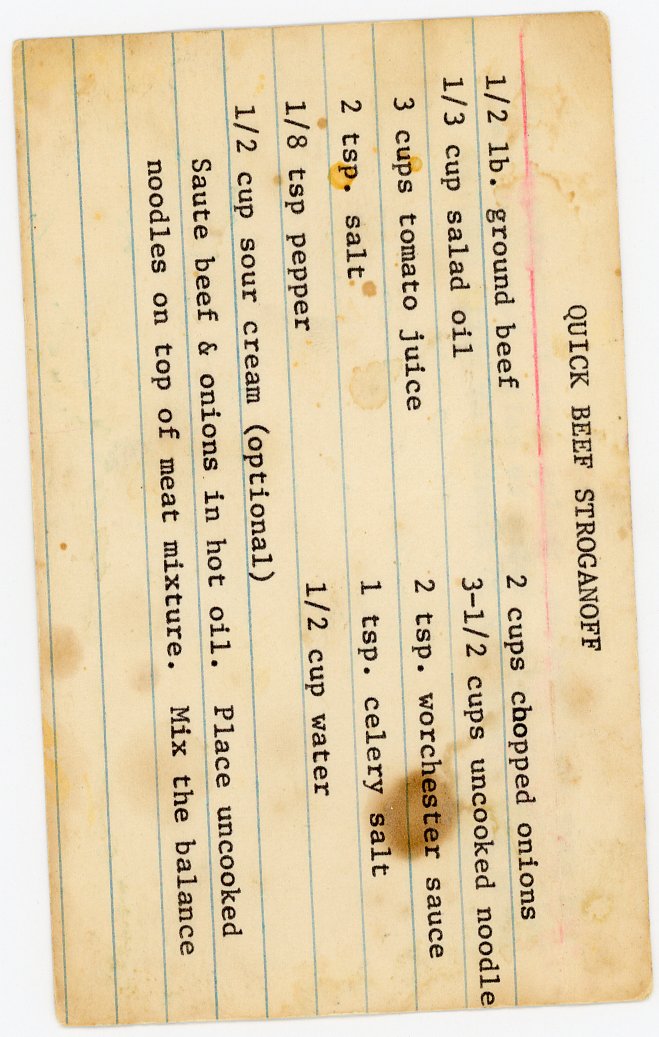 QUICK BEEF STROGANOFF
1/2 lb. ground beef 2 cups chopped onions
1/3 cup salad oil 3-1/2 cups uncooked noodle
3 cups tomato juice 2 tsp. worchester sauce
2 tsp. salt 1 tsp. celery salt
1/8 tsp pepper 1/2 cup water
1/2 cup sour cream (optional)
Saute beef & onions in hot oil. Place uncooked
noodles on top of meat mixture. Mix the balance